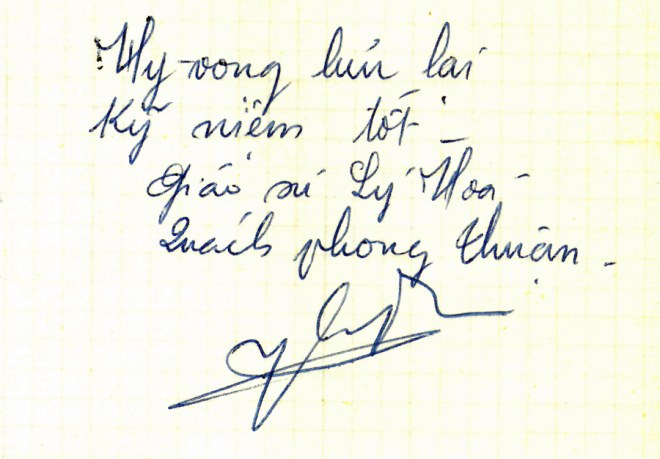 Hy-vọng lưu lại
Kỷ niệm tốt -
Giáo sư Lý Hoá -
Quách phong Thuận -